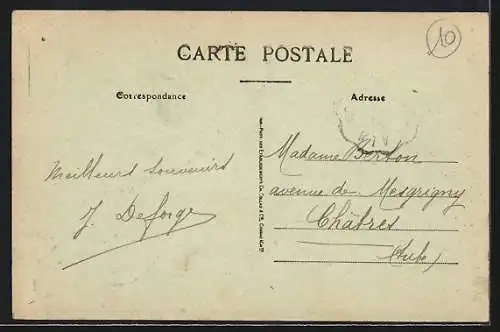 CARTE POSTALE
10
Correspondance
Adresse
Meilleurs Souvenirs
J. Deforge
Madame Berton
avenue de Mesgrigny
Châtres
(Aube)